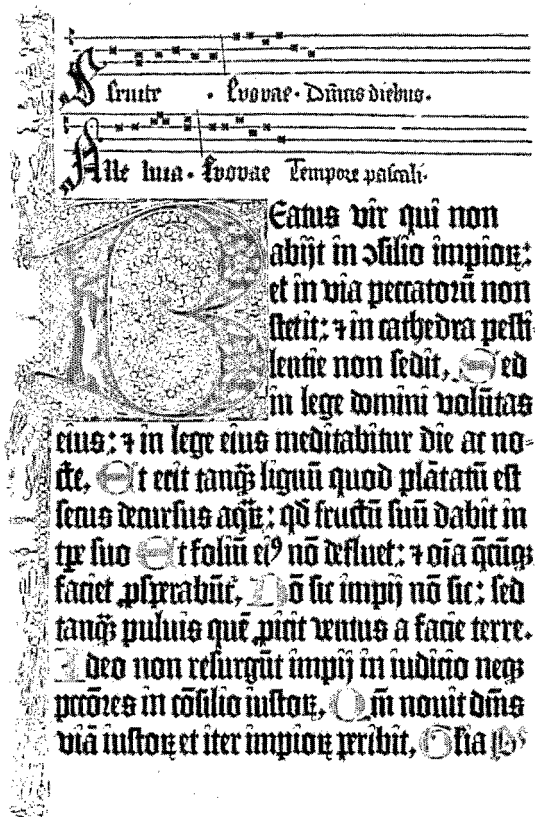 Seruite . Evovae. Dñicis diebus.
Alle luia. Evovae Tempore pascali.
BEatus vir qui non
abijt in ↄsilio impioꝝ:
et in via peccatorū non
stetit: ⁊ in cathedra pesti
lentie non sedit, Sed
in lege domini volūtas
eius: ⁊ in lege eius meditabitur die ac no-
cte, Et erit tanqȝ lignū quod plātatū est
secus decursus aqꝝ: qď fructū suū dabit in
tꝑe suo Et foliū eiꝰ nō defluet: ⁊ oīa q̄cūqȝ
faciet ꝓsperabūt̄, Nō sic impij nō sic: sed
tanqȝ puluis quē ꝓicit ventus a facie terre.
Ideo non resurgūt impij in iudicio neqȝ
pctōres in cōsilio iustoꝝ, Qm̄ nouit dñs
viā iustoꝝ et iter impioꝝ peribit, Glia P